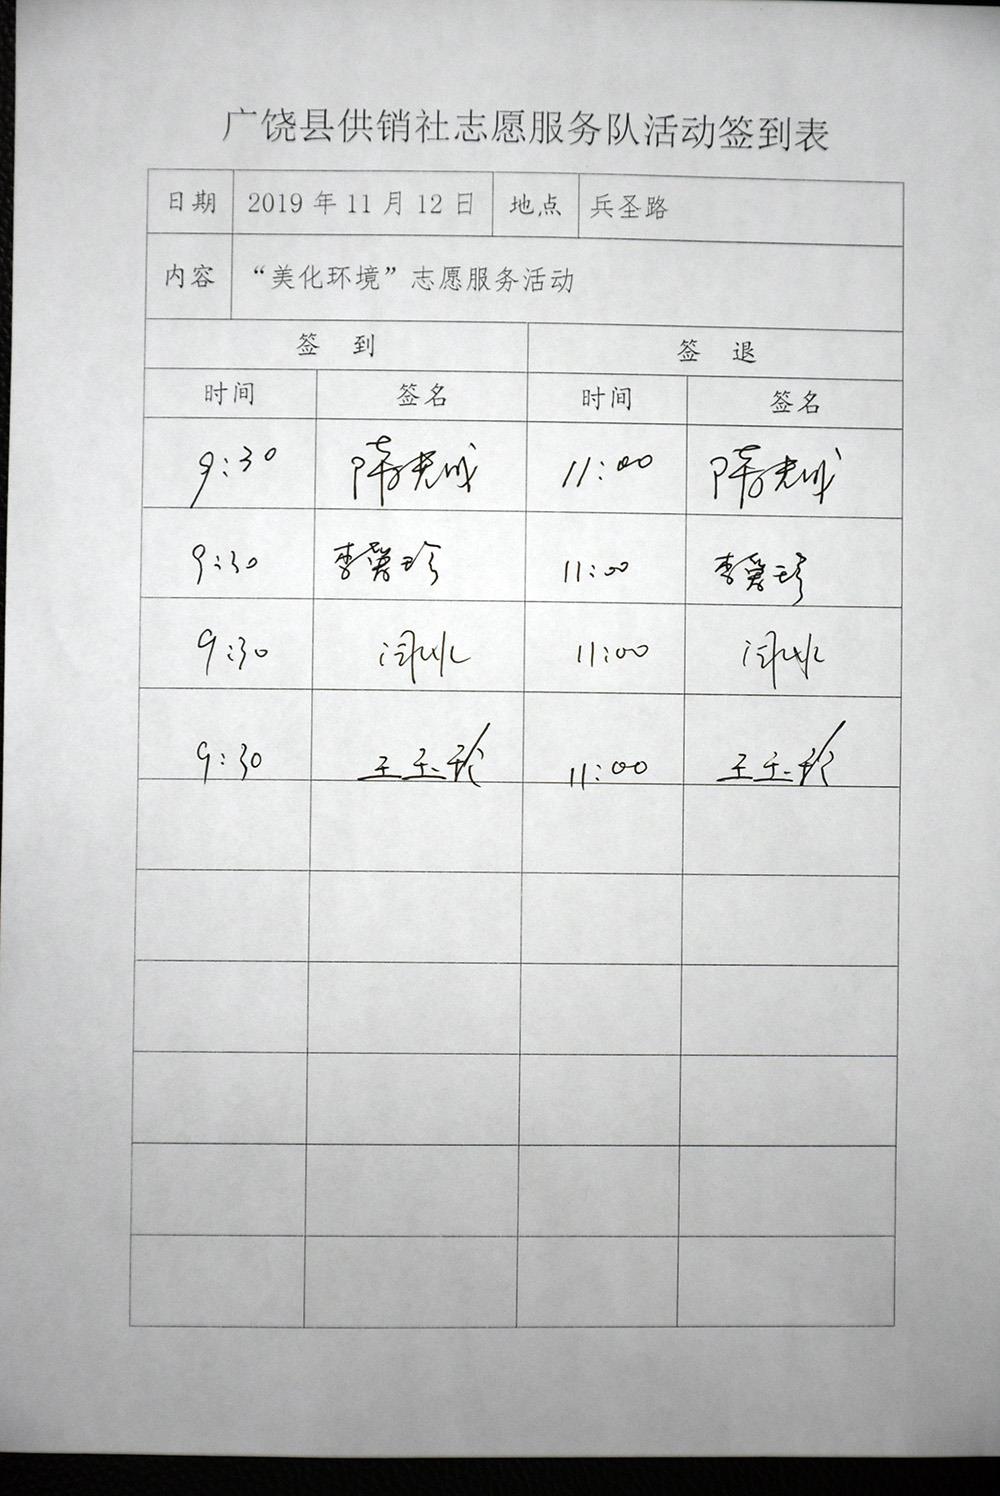 广饶县供销社志愿服务队活动签到表
日期 2019 年 11 月 12 日 地点 兵圣路
内容 “美化环境”志愿服务活动
签 到 签 退
时间 签名 时间 签名
9:30 11:00
9:30 李 珍 11:00 李 珍
9:30 11:00
9:30 王玉珍 11:00 王玉珍